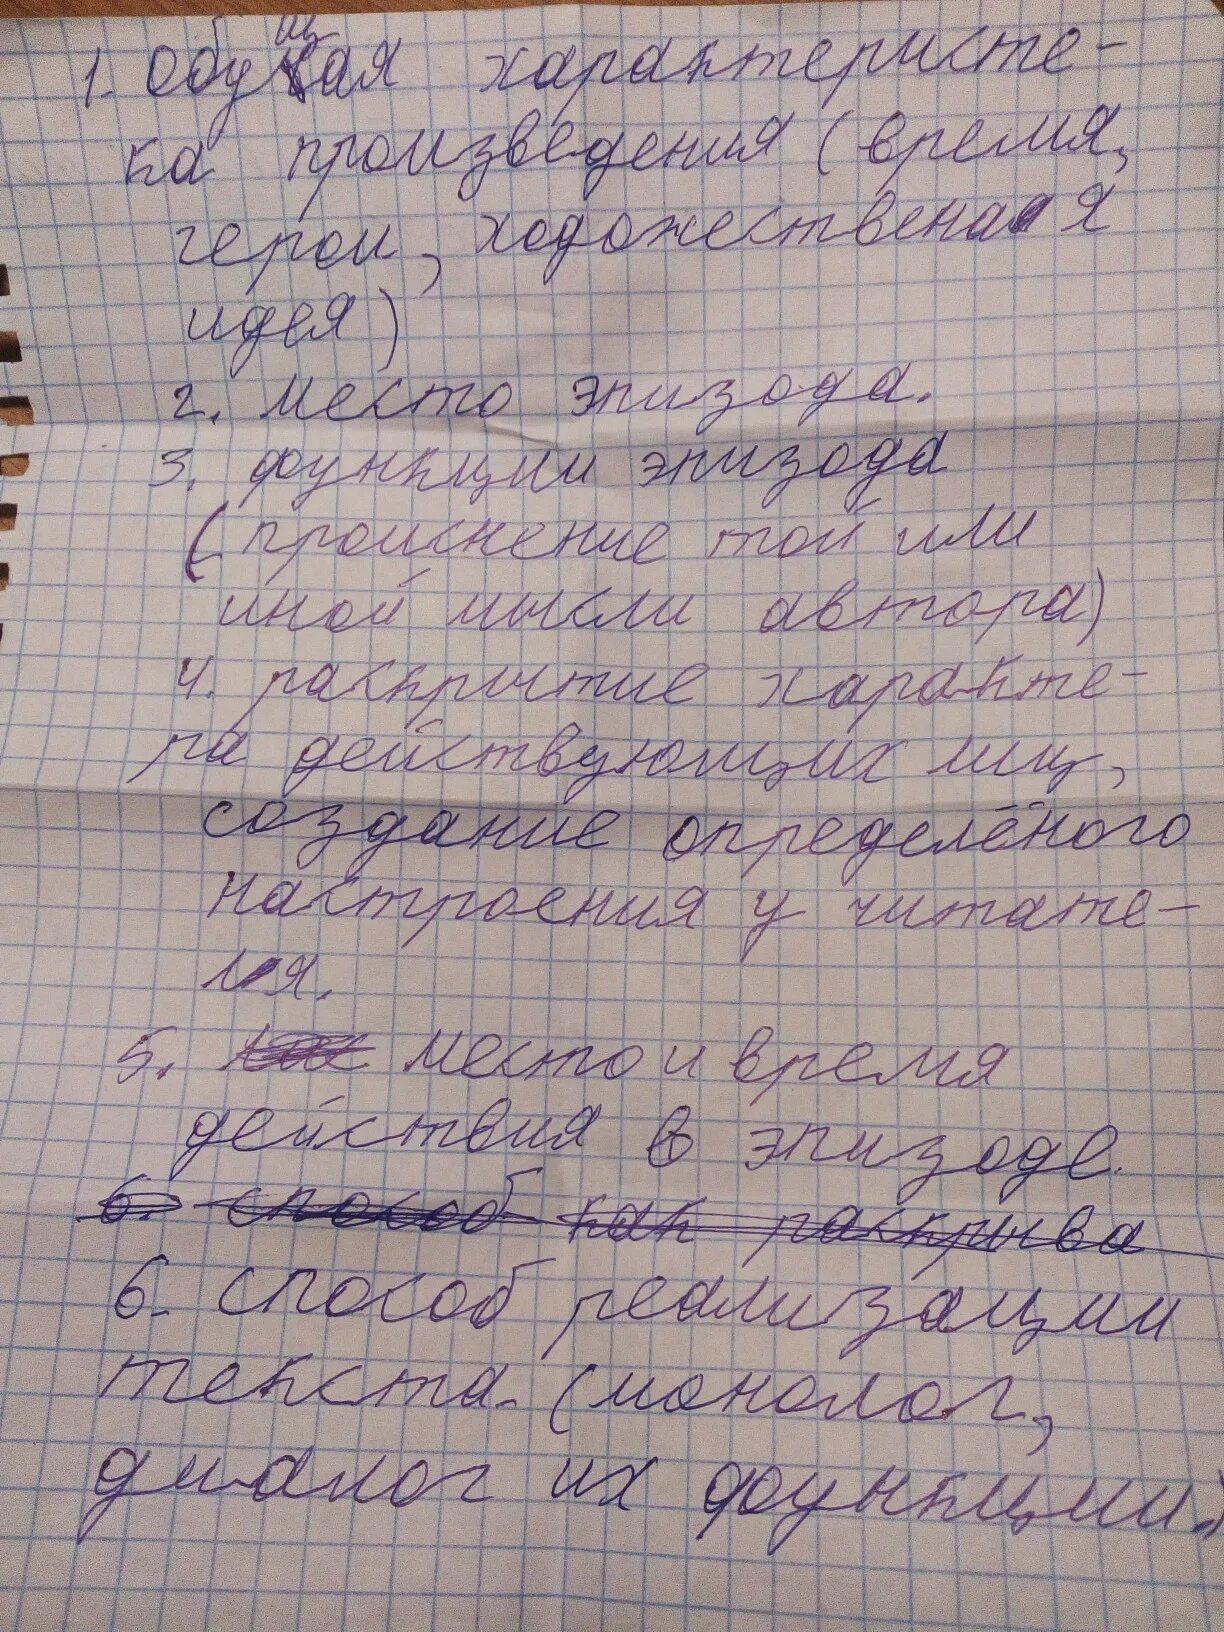 1. Общая характеристе-
ка произведения (время,
герои, ходожественая
идея)
2. место эпизода.
3. функции эпизода
(происнение той или
иной мысли автора)
4. раскрытие характе-
ра действующих лиц,
создание определёного
настроения у читате-
ля.
5. место и время
действия в эпизоде.
6. способ как раскрыва
6. способ реализации
текста. (монолог,
диалог их функции.)